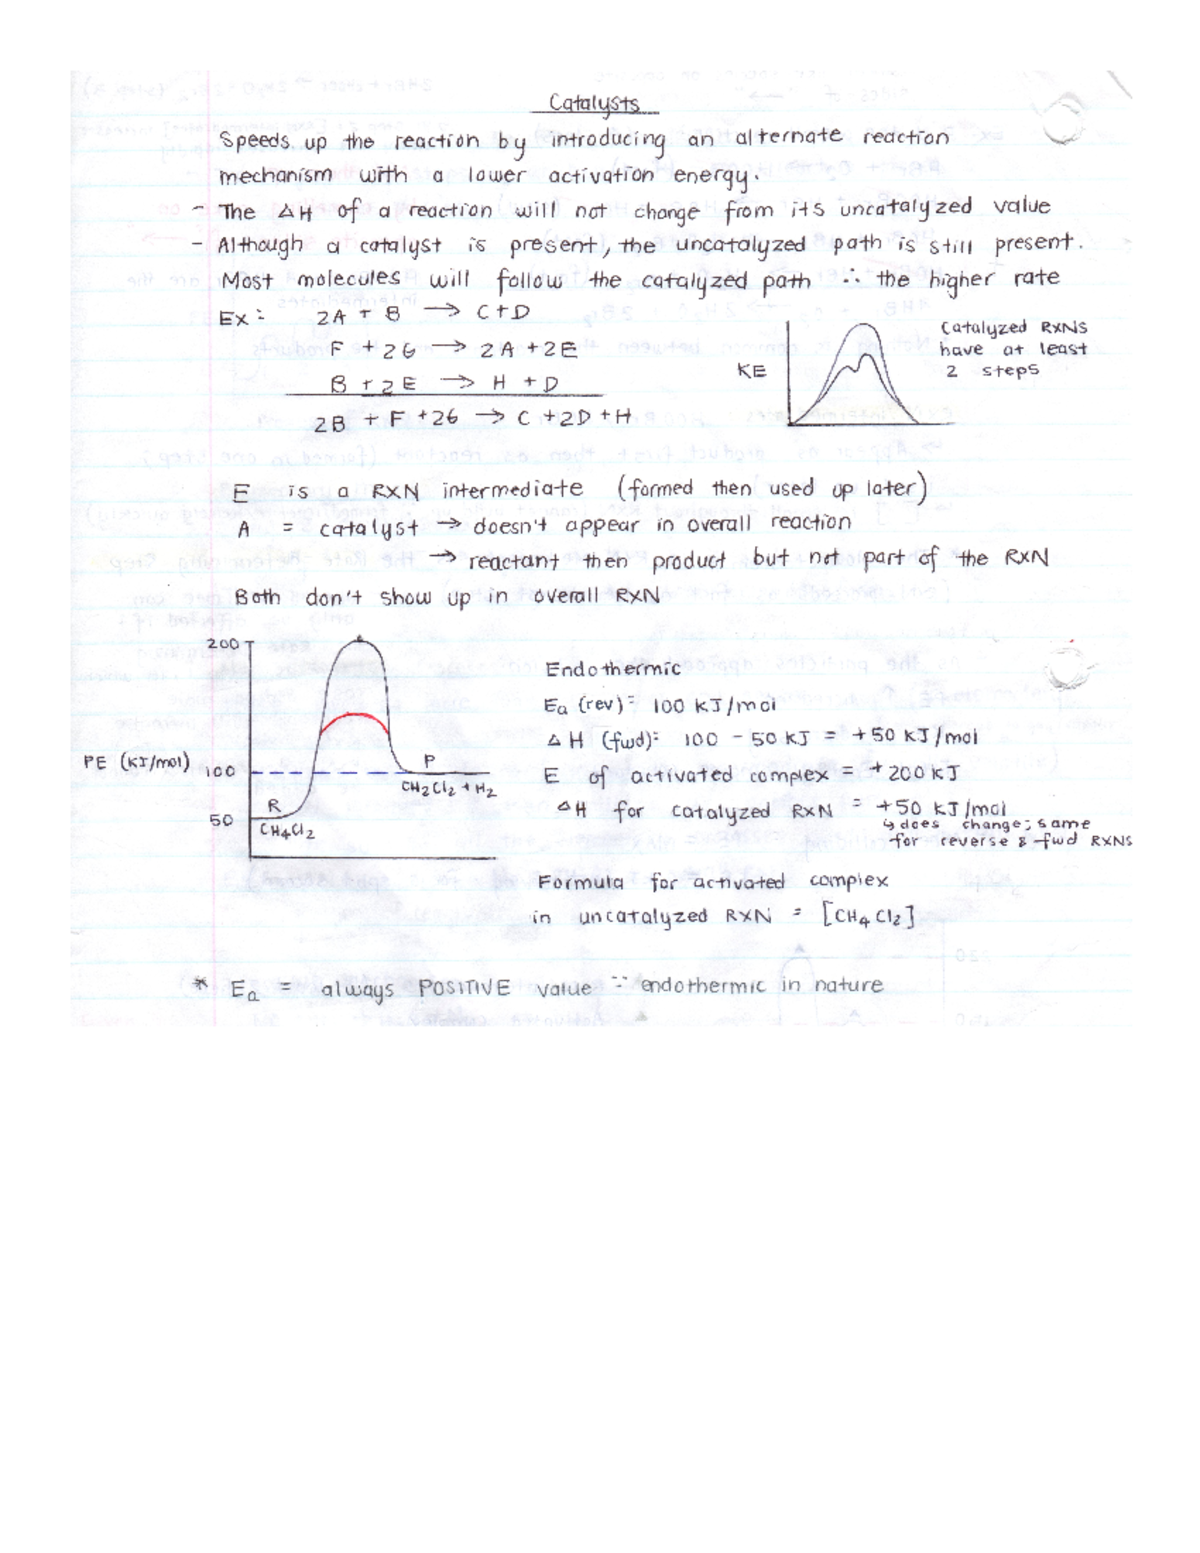 Catalysts
Speeds up the reaction by introducing an alternate reaction
mechanism with a lower activation energy.
- The ΔH of a reaction will not change from its uncatalyzed value
- Although a catalyst is present, the uncatalyzed path is still present.
Most molecules will follow the catalyzed path ∴ the higher rate
Ex: 2A + B → C+D
F + 2G → 2A +2E
B + 2E → H + D
2B + F +2G → C +2D +H
KE
Catalyzed RXNs
have at least
2 steps
E is a RXN intermediate (formed then used up later)
A = catalyst → doesn't appear in overall reaction
→ reactant then product but not part of the RXN
Both don't show up in overall RXN
200
PE (KJ/mol) 100
50
R
CH4Cl2
P
CH2Cl2 + H2
Endothermic
Ea (rev) = 100 KJ/mol
ΔH (fwd): 100 - 50 KJ = +50 KJ/mol
E of activated complex = +200 KJ
ΔH for catalyzed RXN = +50 KJ/mol
↳ does change; same
for reverse & fwd RXNs
Formula for activated complex
in uncatalyzed RXN = [CH4Cl2]
* Ea = always POSITIVE value ∵ endothermic in nature